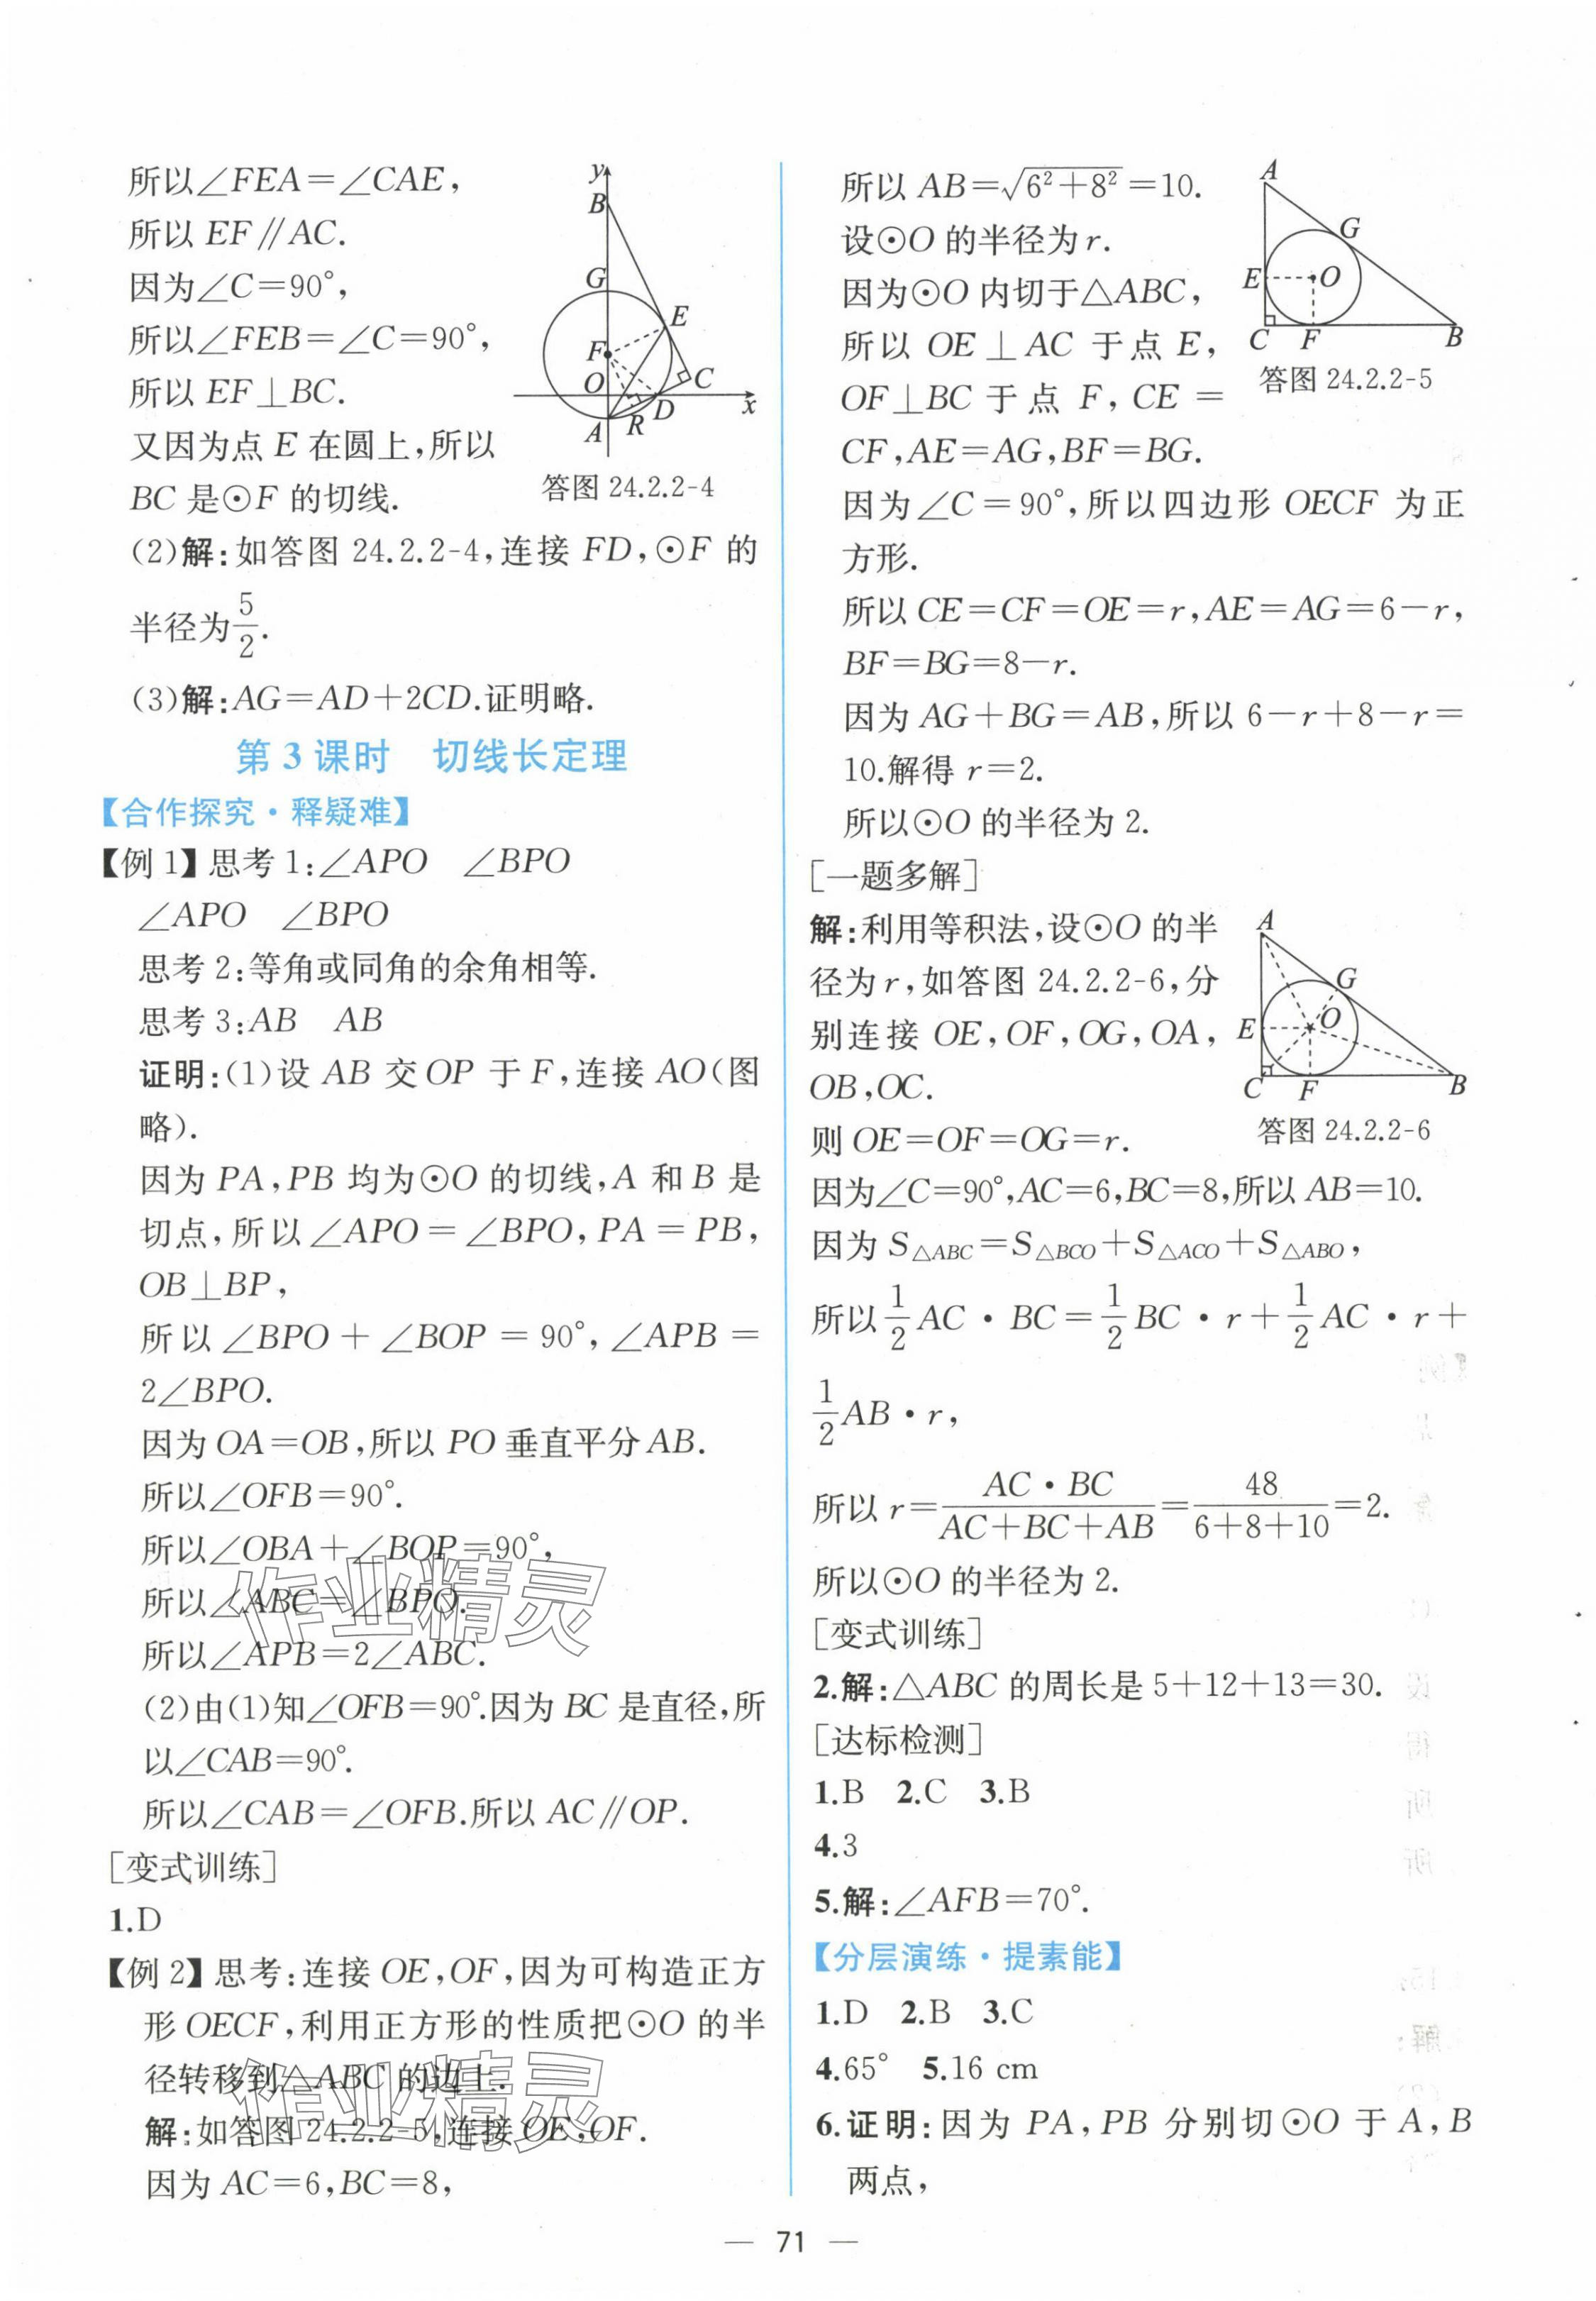 所以∠FEA=∠CAE,
所以 EF∥AC.
因为∠C=90°,
所以∠FEB=∠C=90°,
所以 EF⊥BC.
又因为点 E 在圆上,所以
BC 是⊙F 的切线.
y
B
G
E
F
O
C
D
x
A
R
答图 24.2.2-4
(2)解:如答图 24.2.2-4,连接 FD,⊙F 的
半径为5/2.
(3)解:AG=AD+2CD.证明略.
第 3 课时　切线长定理
【合作探究·释疑难】
【例 1】思考 1:∠APO　∠BPO
∠APO　∠BPO
思考 2:等角或同角的余角相等.
思考 3:AB　AB
证明:(1)设 AB 交 OP 于 F,连接 AO(图
略).
因为 PA,PB 均为⊙O 的切线,A 和 B 是
切点,所以∠APO=∠BPO,PA=PB,
OB⊥BP,
所以∠BPO+∠BOP=90°,∠APB=
2∠BPO.
因为 OA=OB,所以 PO 垂直平分 AB.
所以∠OFB=90°.
所以∠OBA+∠BOP=90°,
所以∠ABC=∠BPO.
所以∠APB=2∠ABC.
(2)由(1)知∠OFB=90°.因为 BC 是直径,所
以∠CAB=90°.
所以∠CAB=∠OFB.所以 AC∥OP.
[变式训练]
1.D
【例 2】思考:连接 OE,OF,因为可构造正方
形 OECF,利用正方形的性质把⊙O 的半
径转移到△ABC 的边上.
解:如答图 24.2.2-5,连接 OE,OF.
因为 AC=6,BC=8,
作业精灵
作业精灵
所以 AB=√(6²+8²)=10.
设⊙O 的半径为 r.
因为⊙O 内切于△ABC,
所以 OE⊥AC 于点 E,
OF⊥BC 于点 F,CE=
CF,AE=AG,BF=BG.
A
G
E
O
C
F
B
答图 24.2.2-5
因为∠C=90°,所以四边形 OECF 为正
方形.
所以 CE=CF=OE=r,AE=AG=6-r,
BF=BG=8-r.
因为 AG+BG=AB,所以 6-r+8-r=
10.解得 r=2.
所以⊙O 的半径为 2.
[一题多解]
解:利用等积法,设⊙O 的半
径为 r,如答图 24.2.2-6,分
别连接 OE,OF,OG,OA,
OB,OC.
则 OE=OF=OG=r.
A
G
E
O
C
F
B
答图 24.2.2-6
因为∠C=90°,AC=6,BC=8,所以 AB=10.
因为 S△ABC=S△BCO+S△ACO+S△ABO,
所以1/2AC·BC=1/2BC·r+1/2AC·r+
1/2AB·r,
所以 r=AC·BC/(AC+BC+AB)=48/(6+8+10)=2.
所以⊙O 的半径为 2.
[变式训练]
2.解:△ABC 的周长是 5+12+13=30.
[达标检测]
1.B　2.C　3.B
4.3
5.解:∠AFB=70°.
【分层演练·提素能】
1.D　2.B　3.C
4.65°　5.16 cm
6.证明:因为 PA,PB 分别切⊙O 于 A,B
两点,
— 71 —